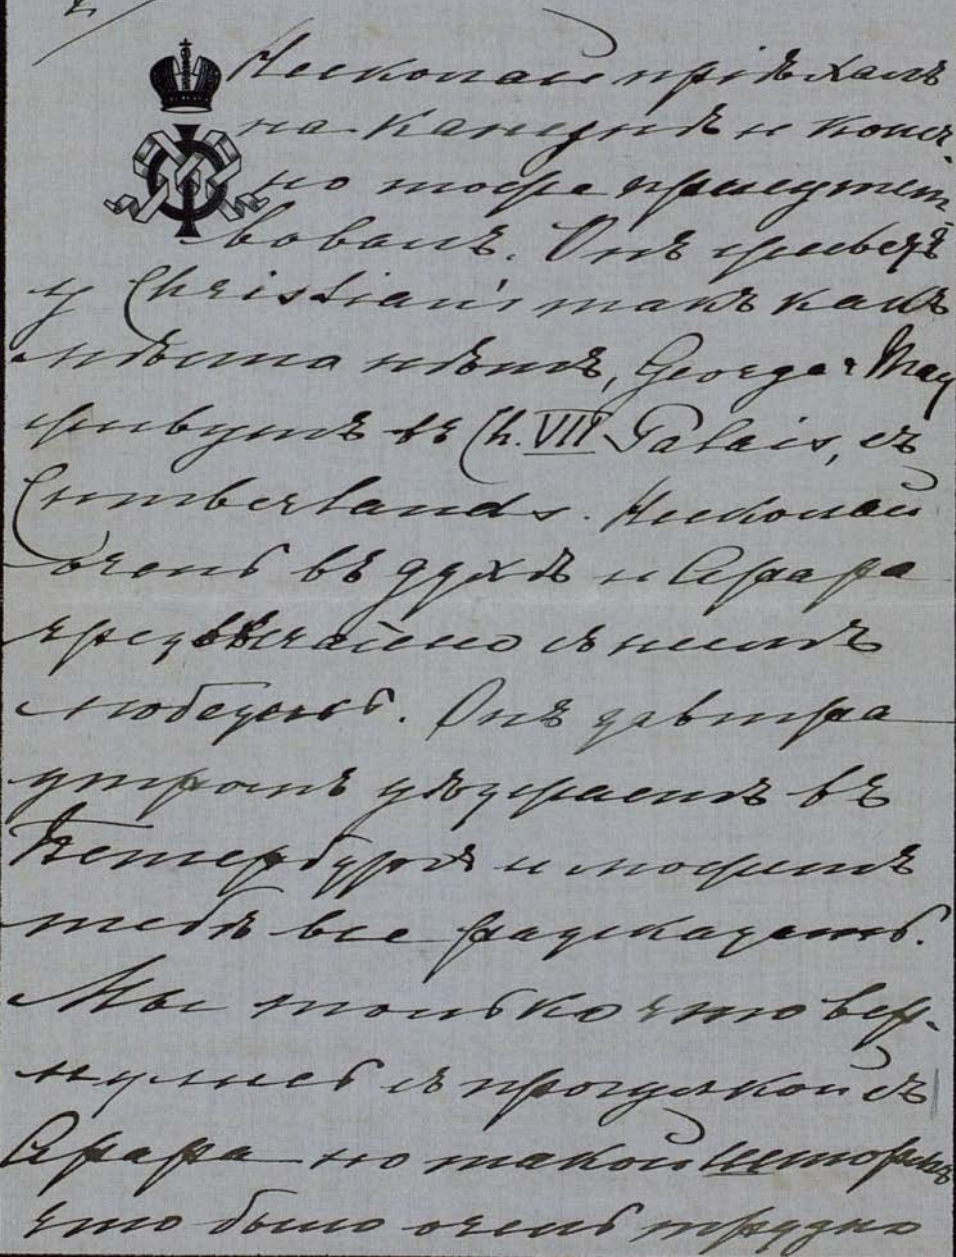 Николай пріѣхалъ
на канунѣ и конеч-
но тоже присутст-
вовалъ. Онъ живетъ
у Christian's такъ какъ
мѣста нѣтъ, George & May
живутъ въ Ch. VII Palais, съ
Cumberlands. Николай
очень въ духѣ и Апапа
чрезвычайно съ нимъ
любезенъ. Онъ завтра
утромъ уѣзжаетъ въ
Петербургъ и можетъ
тебѣ все разсказать.
Мы только что вер-
нулись съ прогулкой съ
Апапа но такой штормъ
что было очень трудно